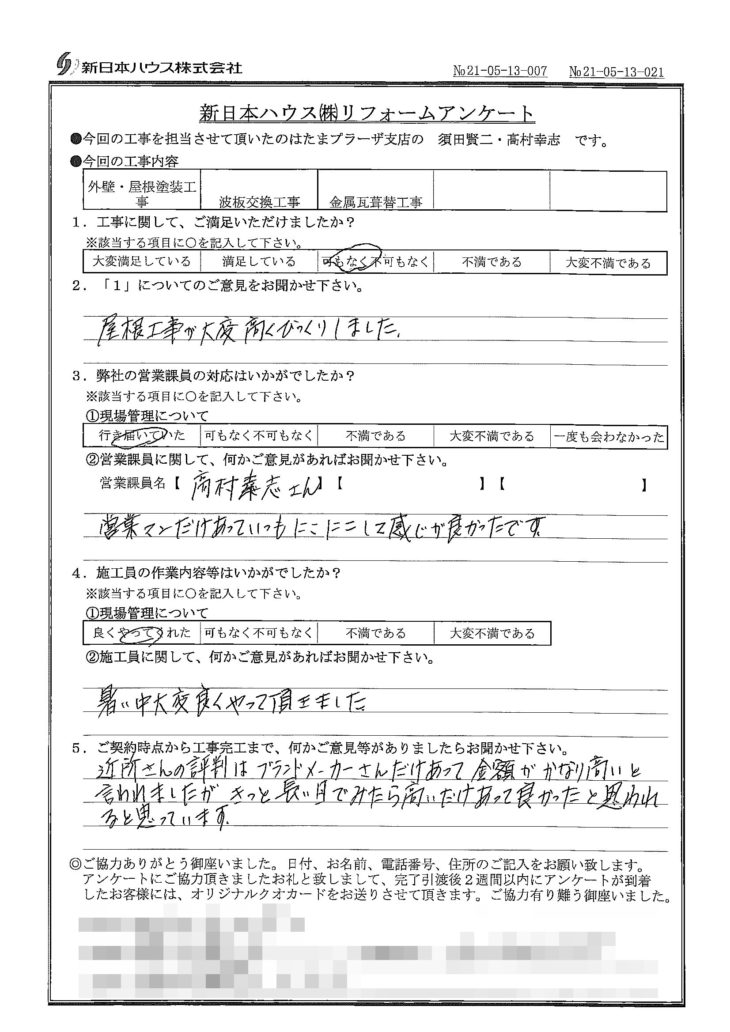 新日本ハウス株式会社
№21-05-13-007 №21-05-13-021
新日本ハウス㈱リフォームアンケート
●今回の工事を担当させて頂いたのはたまプラーザ支店の 須田賢二・高村幸志 です。
●今回の工事内容
外壁・屋根塗装工事 波板交換工事 金属瓦葺替工事
１．工事に関して、ご満足いただけましたか？
※該当する項目に〇を記入して下さい。
大変満足している 満足している 可もなく不可もなく 不満である 大変不満である
２．「１」についてのご意見をお聞かせ下さい。
屋根工事が大変高くびっくりしました。
３．弊社の営業課員の対応はいかがでしたか？
※該当する項目に〇を記入して下さい。
①現場管理について
行き届いていた 可もなく不可もなく 不満である 大変不満である 一度も会わなかった
②営業課員に関して、何かご意見があればお聞かせ下さい。
営業課員名【 高村 志さん】【 】【 】
営業マンだけあっていつもにこにこして感じが良かったです。
４．施工員の作業内容等はいかがでしたか？
※該当する項目に〇を記入して下さい。
①現場管理について
良くやってくれた 可もなく不可もなく 不満である 大変不満である
②施工員に関して、何かご意見があればお聞かせ下さい。
暑い中大変良くやって頂きました
５．ご契約時点から工事完工まで、何かご意見等がありましたらお聞かせ下さい。
近所さんの評判はブランドメーカーさんだけあって金額がかなり高いと
言われましたがきっと長い目でみたら高いだけあって良かったと思われ
ると思っています。
◎ご協力ありがとう御座いました。日付、お名前、電話番号、住所のご記入をお願い致します。
アンケートにご協力頂きましたお礼と致しまして、完了引渡後２週間以内にアンケートが到着
したお客様には、オリジナルクオカードをお送りさせて頂きます。ご協力有り難う御座いました。